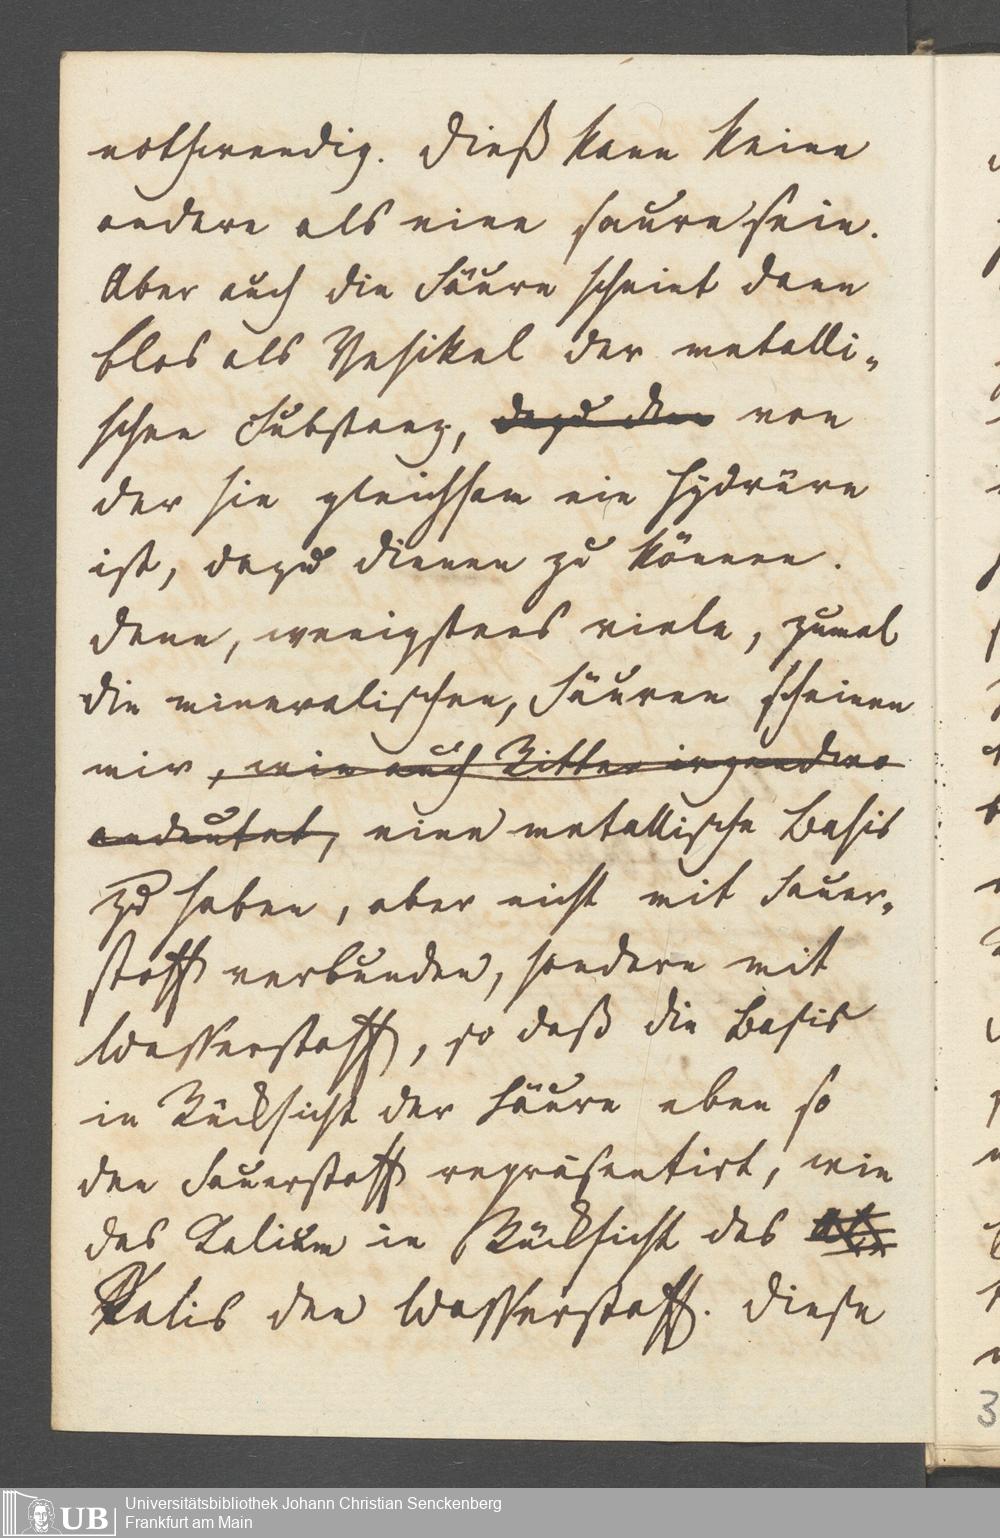 nothwendig. Dieß kann keine
andere als eine saure sein.
Aber auch die Säure scheint dann
blos als Vehikel der metalli-
schen Substanz, dazu dien von
der sie gleichsam ein Hydrüre
ist, dazu dienen zu können.
Denn, wenigstens viele, zumal
die mineralischen, Säuren scheinen
mir, wie auch Ritter irgendwo
andeutet, eine metallische Basis
zu haben, aber nicht mit Sauer-
stoff verbunden, sondern mit
Wasserstoff, so daß die Basis
in Rücksicht der Säure eben so
den Sauerstoff repräsentirt, wie
das Kalium in Rücksicht des
Kalis den Wasserstoff. Diese
3
UB
Universitätsbibliothek Johann Christian Senckenberg
Frankfurt am Main